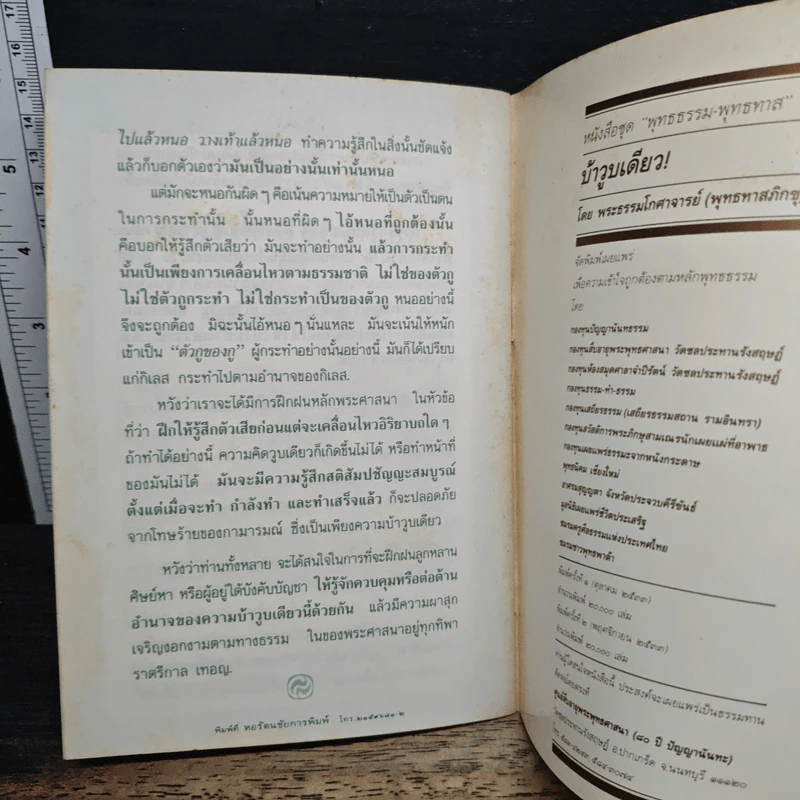 ไปแล้วหนอ วางเท้าแล้วหนอ ทำความรู้สึกในสิ่งนั้นชัดแจ้ง
แล้วก็บอกตัวเองว่ามันเป็นอย่างนั้นเท่านั้นหนอ
แต่มักจะหนอกันผิดๆ คือเน้นความหมายให้เป็นตัวเป็นตน
ในการกระทำนั้น นั้นหนอที่ผิดๆ ไอ้หนอที่ถูกต้องนั้น
คือบอกให้รู้สึกตัวเสียว่า มันจะทำอย่างนั้น แล้วการกระทำ
นั้นเป็นเพียงการเคลื่อนไหวตามธรรมชาติ ไม่ใช่ของตัวกู
ไม่ใช่ตัวกูกระทำ ไม่ใช่กระทำเป็นของตัวกู หนออย่างนี้
จึงจะถูกต้อง มิฉะนั้นไอ้หนอๆ นั่นแหละ มันจะเน้นให้หนัก
เข้าเป็น “ตัวกูของกู” ผู้กระทำอย่างนั้นอย่างนี้ มันก็ได้เปรียบ
แก่กิเลส กระทำไปตามอำนาจของกิเลส.
หวังว่าเราจะได้มีการฝึกฝนหลักพระศาสนา ในหัวข้อ
ที่ว่า ฝึกให้รู้สึกตัวเสียก่อนแต่จะเคลื่อนไหวอิริยาบถใดๆ
ถ้าทำได้อย่างนี้ ความคิดวูบเดียวก็เกิดขึ้นไม่ได้ หรือทำหน้าที่
ของมันไม่ได้ มันจะมีความรู้สึกสติสัมปชัญญะสมบูรณ์
ตั้งแต่เมื่อจะทำ กำลังทำ และทำเสร็จแล้ว ก็จะปลอดภัย
จากโทษร้ายของกามารมณ์ ซึ่งเป็นเพียงความบ้าวูบเดียว
หวังว่าท่านทั้งหลาย จะได้สนใจในการที่จะฝึกฝนลูกหลาน
ศิษย์หา หรือผู้อยู่ใต้บังคับบัญชา ให้รู้จักควบคุมหรือต่อต้าน
อำนาจของความบ้าวูบเดียวนี้ด้วยกัน แล้วมีความผาสุก
เจริญงอกงามตามทางธรรม ในของพระศาสนาอยู่ทุกทิพา
ราตรีกาล เทอญ.
พิมพ์ที่ หอรัตนชัยการพิมพ์ โทร.
หนังสือชุด “พุทธธรรม-พุทธทาส”
บ้าวูบเดียว!
โดย พระธรรมโกศาจารย์ (พุทธทาสภิกขุ)
จัดพิมพ์เผยแพร่
เพื่อความเข้าใจถูกต้องตามหลักพุทธธรรม
โดย
กองทุนปัญญานันทธรรม
กองทุนสืบอายุพระพุทธศาสนา วัดชลประทานรังสฤษฎ์
กองทุนห้องสมุดศาลาจำปีรัตน์ วัดชลประทานรังสฤษฎ์
กองทุนธรรม-ทำ-ธรรม
กองทุนเสถียรธรรม (เสถียรธรรมสถาน รามอินทรา)
กองทุนสวัสดิการพระภิกษุสามเณรนักเผยแผ่ที่อาพาธ
กองทุนเผยแพร่ธรรมะจากหนังกระดาษ
พุทธนิคม เชียงใหม่
อาศรมสุญญตา จังหวัดประจวบคีรีขันธ์
มูลนิธิเผยแพร่ชีวิตประเสริฐ
ชมรมครูศีลธรรมแห่งประเทศไทย
ชมรมชาวพุทธพาต้า
พิมพ์ครั้งที่ ๑ (ตุลาคม ๒๕๓๓)
จำนวนพิมพ์ ๒๐,๐๐๐ เล่ม
พิมพ์ครั้งที่ ๒ (พฤศจิกายน ๒๕๓๓)
จำนวนพิมพ์ ๒๐,๐๐๐ เล่ม
ท่านผู้ใดสนใจหนังสือนี้ ประสงค์จะเผยแพร่เป็นธรรมทาน
ติดต่อโดยตรงที่
ศูนย์สืบอายุพระพุทธศาสนา (๘๐ ปี ปัญญานันทะ)
วัดชลประทานรังสฤษฎ์ อ.ปากเกร็ด จ.นนทบุรี ๑๑๑๒๐
17
16
15
14
13
12
11
10
9
8
5
4
3